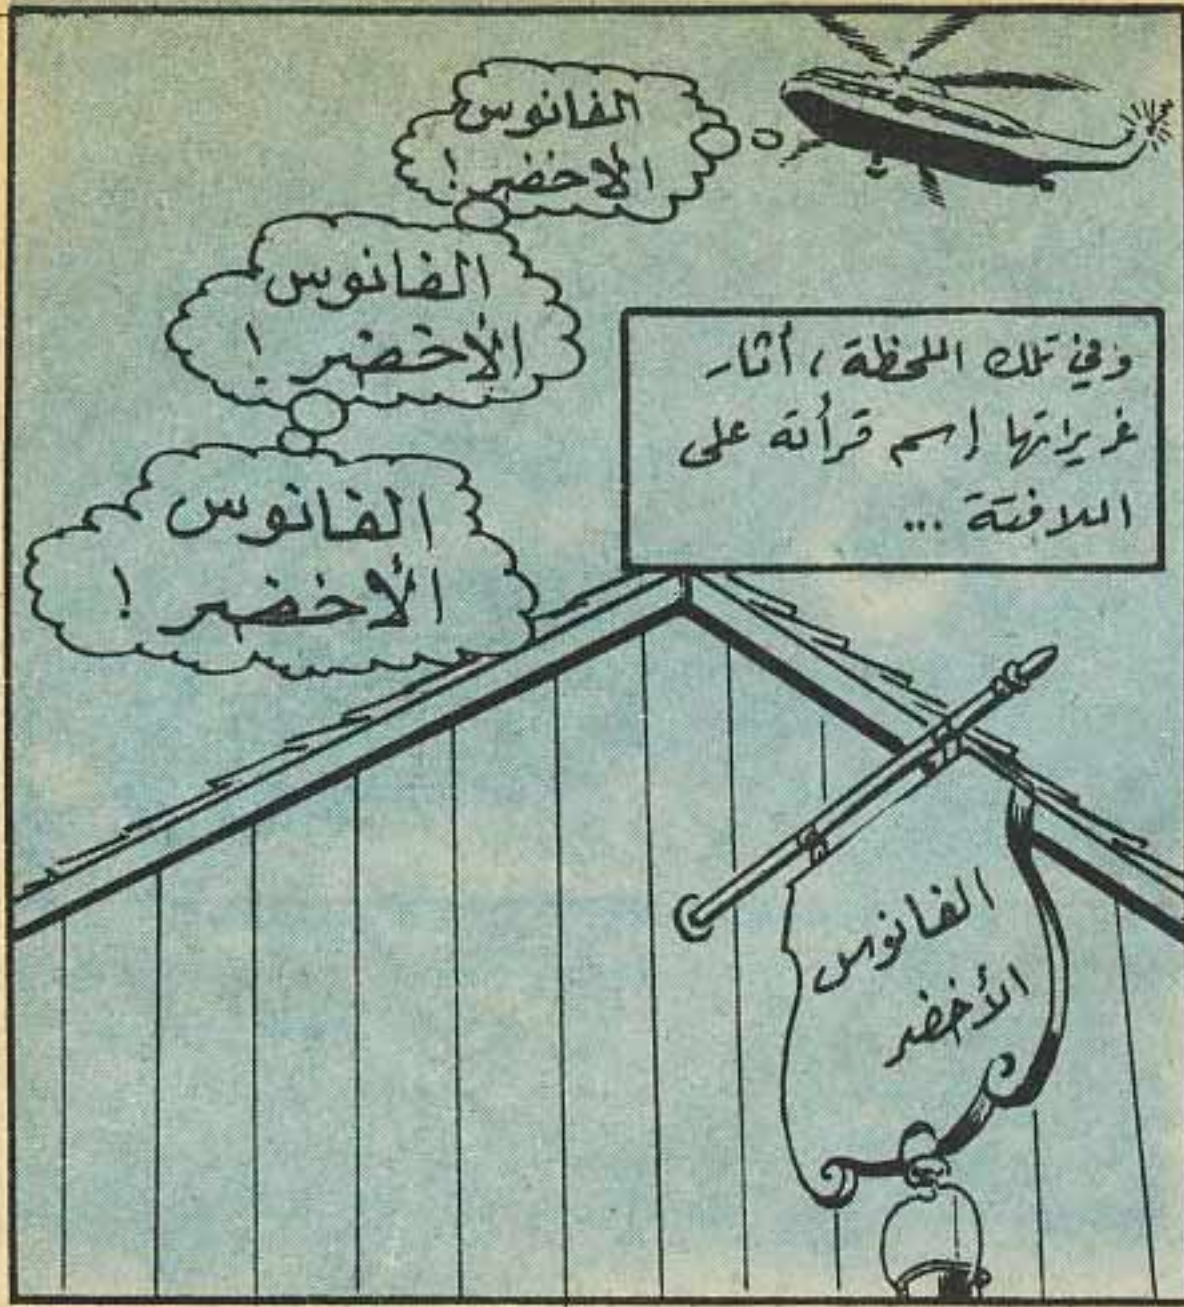 الفانوس
الأخضر !
الفانوس
الأخضر !
الفانوس
الأخضر !
وفي تلك اللحظة ، أثار
غريزتها إسم قرأته على
اللافتة ...
الفانوس
الأخضر